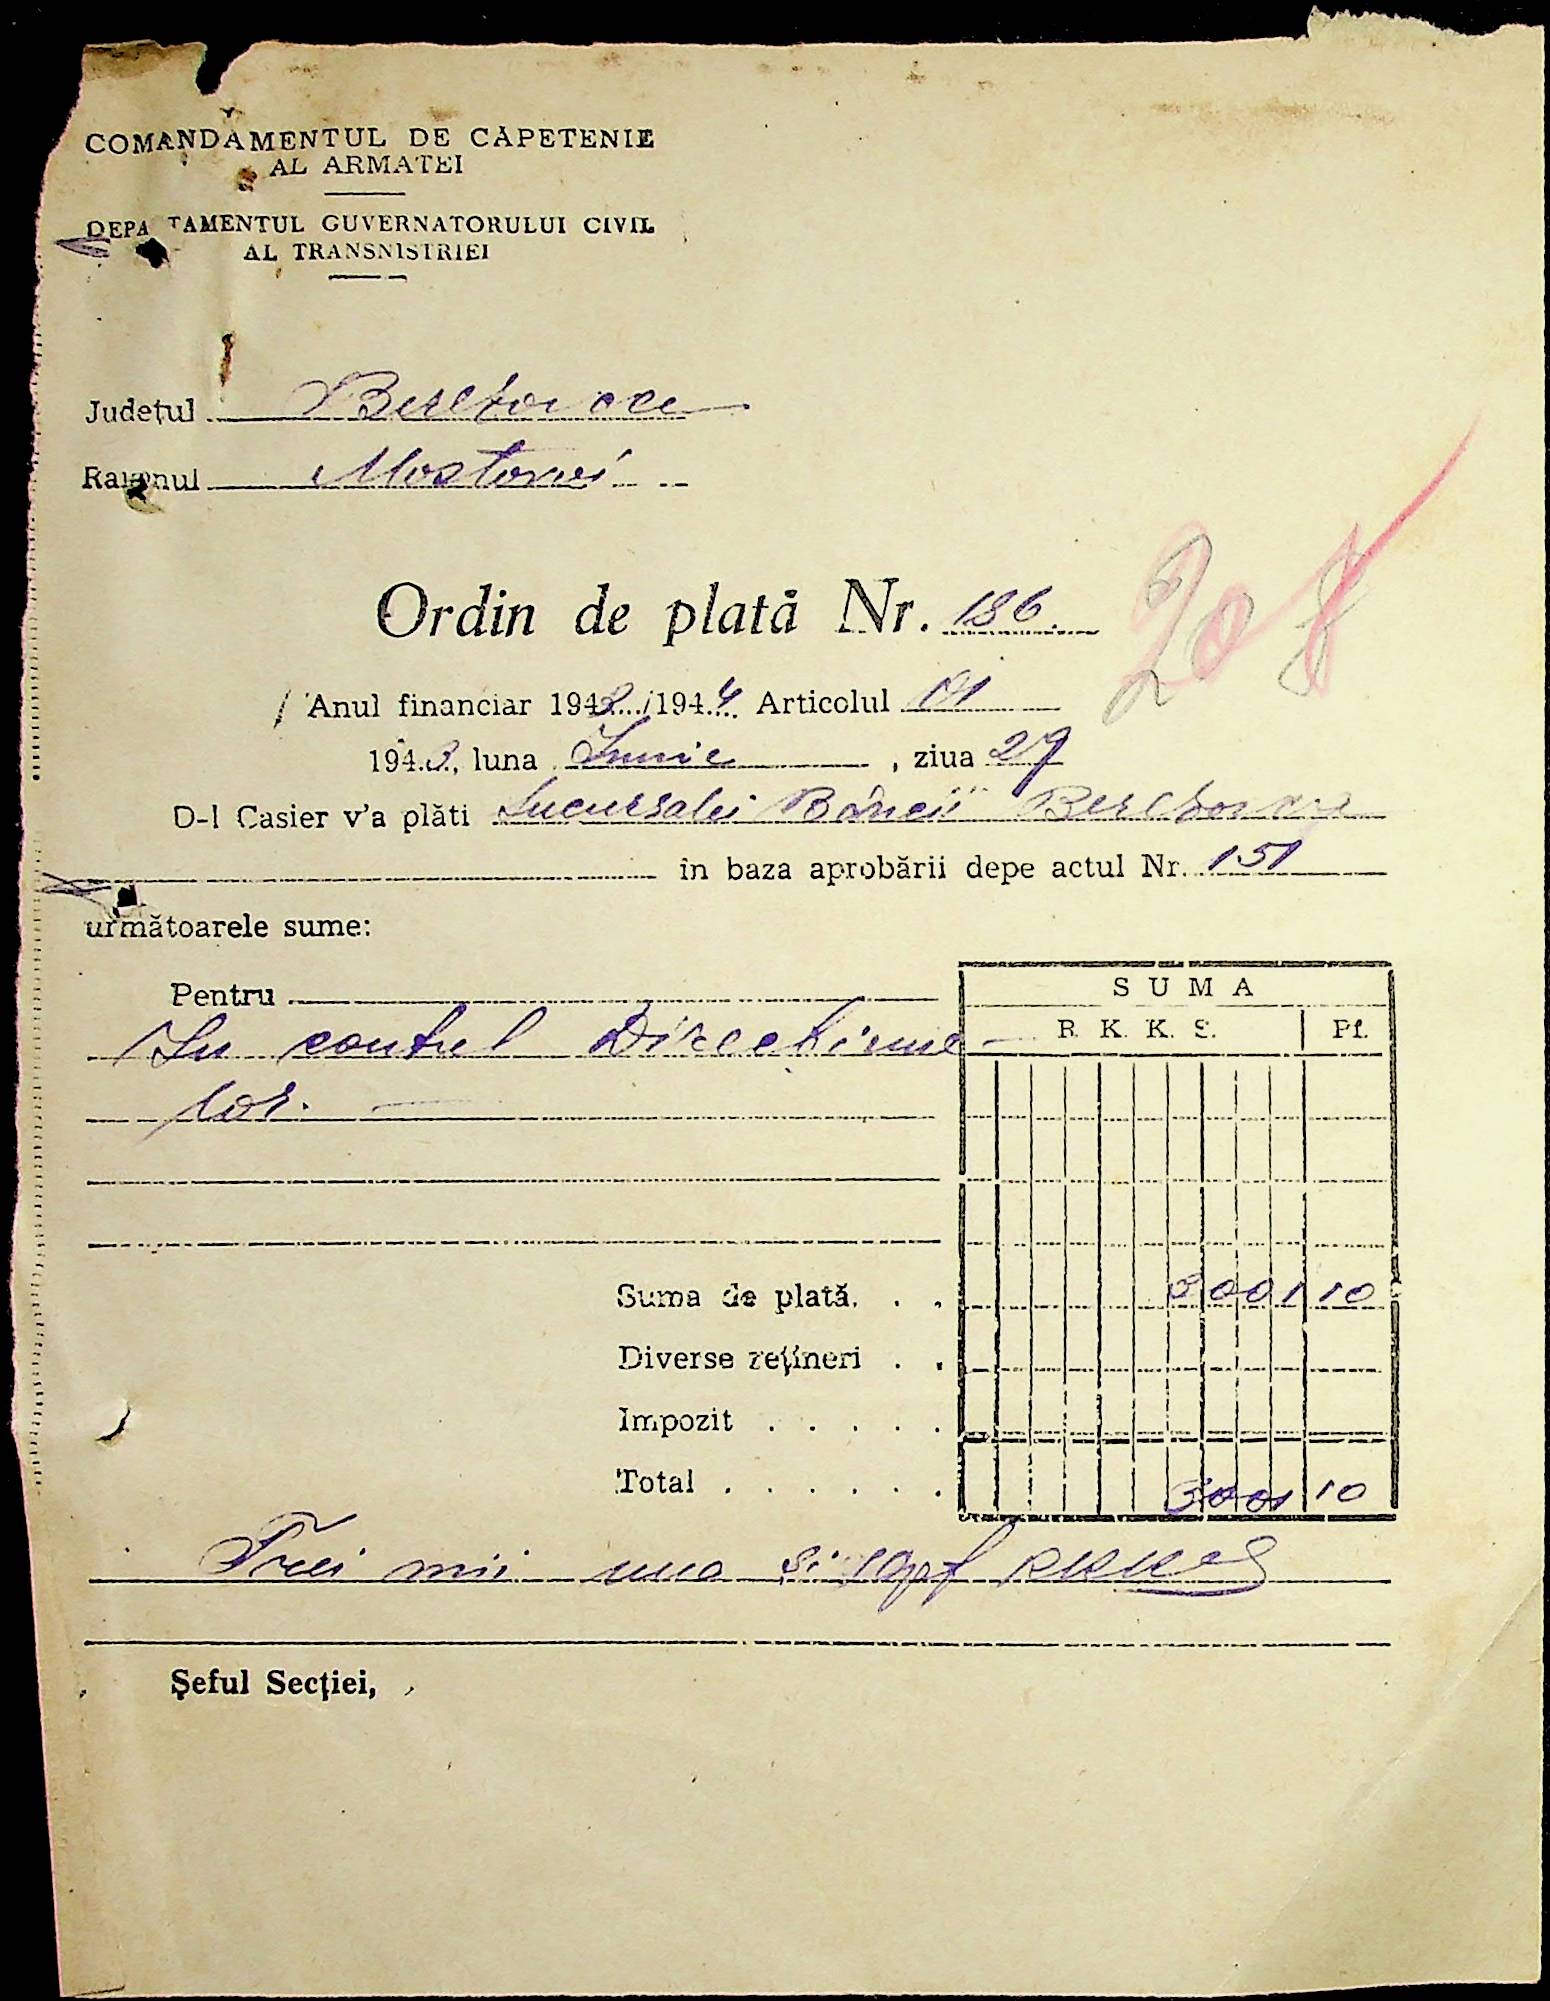 COMANDAMENTUL DE CĂPETENIE
AL ARMATEI
DEPA TAMENTUL GUVERNATORULUI CIVIL
AL TRANSNISTRIEI
Județul Beresovca
Raionul Mostovoi
Ordin de plată Nr. 186.
208
Anul financiar 1943/1944 Articolul 101
1943, luna Iunie, ziua 29
D-l Casier v'a plăti Sucursalei Băncii Beresovca
în baza aprobării depe actul Nr. 151
următoarele sume:
Pentru
SUMA
In contul Direcțiunei
R. K. K. S. Pf.
lor.
Suma de plată. . . 3001 10
Diverse rețineri . .
Impozit . . . . .
Total . . . . . . 3001 10
Trei mii una și 10 pf RKKS
Șeful Secției,